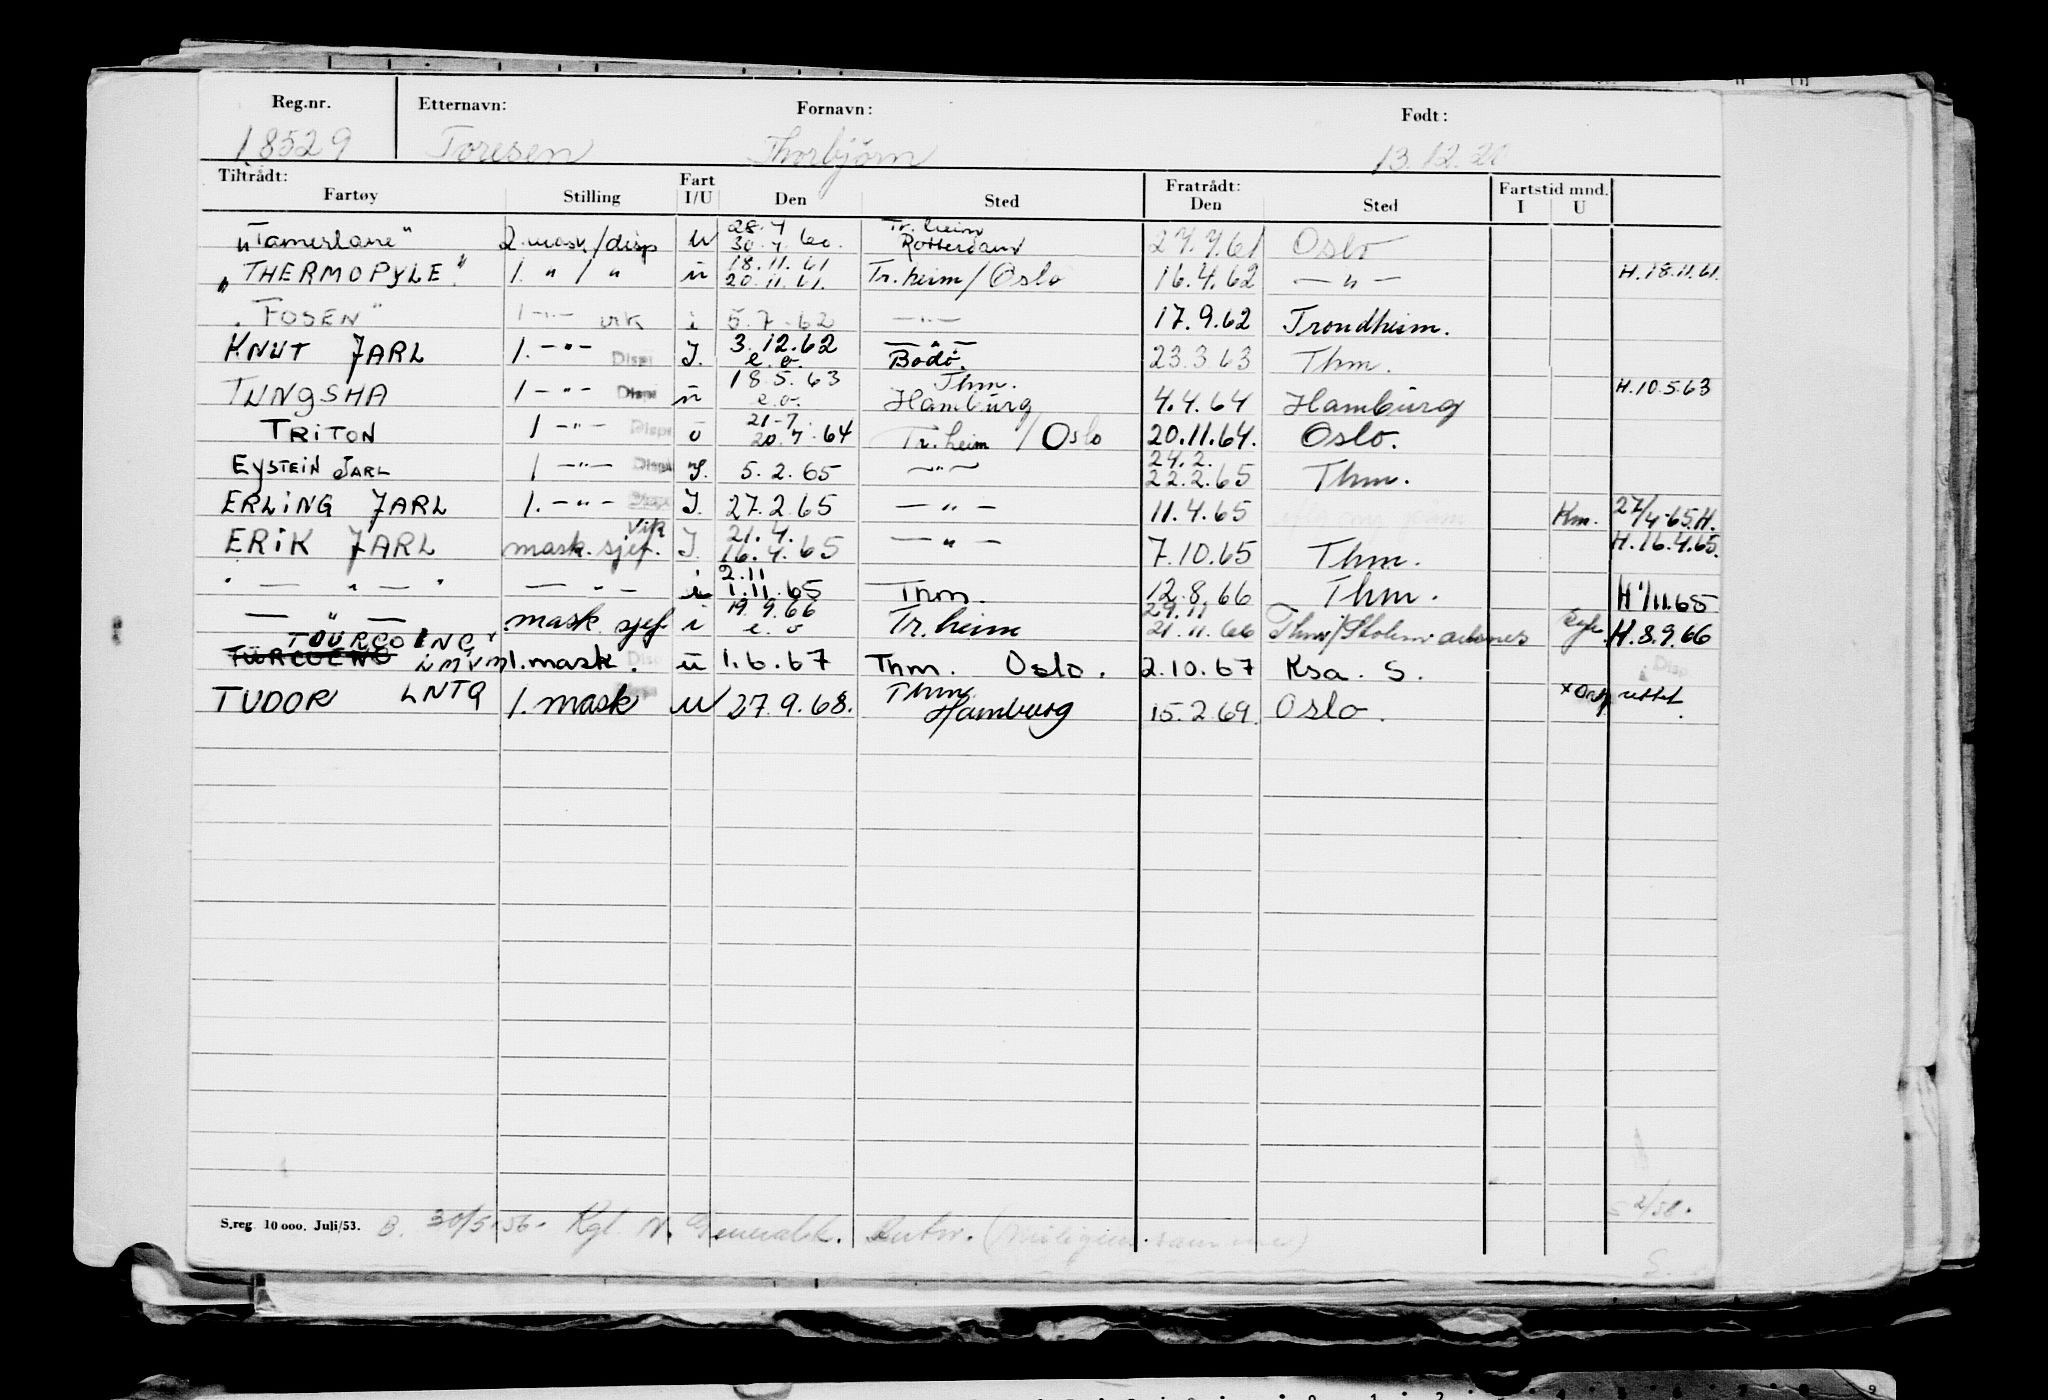 Reg.nr. Etternavn: Fornavn: Født:
18529 Toresen Thorbjörn 13.12.20
Tiltrådt: Fart Fratrådt: Fartstid mnd.
Fartøy Stilling I/U Den Sted Den Sted I U
28.7 Tr.heim
"Tamerlane" 2. mask/disp U 30.7.60. Rotterdam 27.7.61 Oslo
18.11.61
"THERMOPYLE" 1. " / " ū 20.11.61. Tr.heim/Oslo 16.4.62 — " — H.18.11.61.
"FOSEN" 1 — " — vik i 5.7.62 — " — 17.9.62 Trondheim.
3.12.62 — " —
KNUT JARL 1. — " — Disp I. e.o. Bodö. 23.3.63 Thm.
18.5.63 Thm.
TUNGSHA 1 — " — Disp ū e.o. Hamburg 4.4.64 Hamburg H.10.5.63
21-7
TRITON 1 — " — Disp ū 20.7.64 Tr.heim / Oslo 20.11.64. Oslo.
24.2.
EYSTEIN JARL 1 — " — Disp I. 5.2.65 — " — 22.2.65 Thm.
ERLING JARL 1. — " — Disp I. 27.2.65 — " — 11.4.65 Km. 27/4-65.H.
vik 21.4.
ERIK JARL mask.sjef. I. 16.4.65 — " — 7.10.65 Thm. H.16.4.65.
2.11
" — " — " — " — i 1.11.65 Thm. 12.8.66 Thm. H 1/11.65
19.9.66 29.11
— " — mask sjef i e.o Tr.heim 21.11.66 Thm/ H.8.9.66
TOURCOING
TURCOENG LMVM 1.mask. Disp ū 1.6.67 Thm. Oslo. 2.10.67 Ksa. S. i Disp
Thm
TUDOR LNTQ 1. mask U 27.9.68. Hamburg 15.2.69. Oslo. uttet
S.reg 10 000. Juli/53. B. 30/5-56. Kgl. N. Generalk. 2/58.
S.